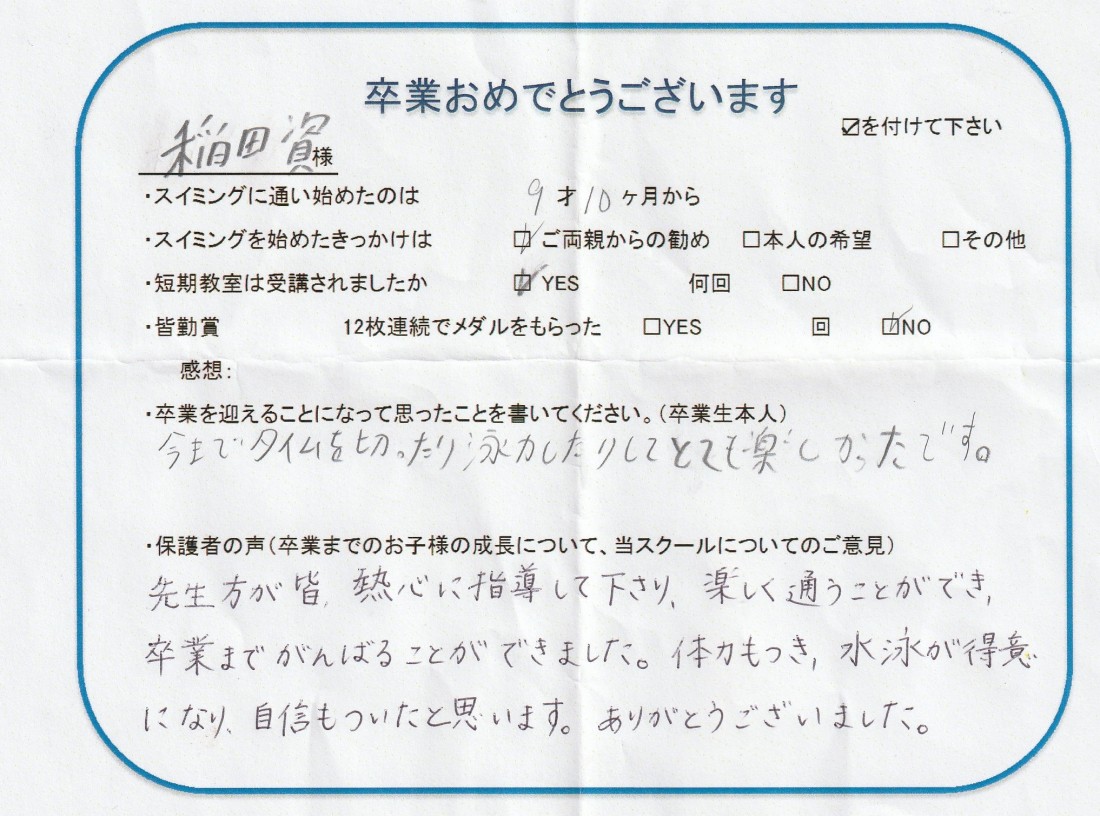 卒業おめでとうございます
☑を付けて下さい
稲田 資様
・スイミングに通い始めたのは 9才10ヶ月から
・スイミングを始めたきっかけは ☑ご両親からの勧め □本人の希望 □その他
・短期教室は受講されましたか ☑YES 何回 □NO
・皆勤賞 12枚連続でメダルをもらった □YES 回 ☑NO
感想：
・卒業を迎えることになって思ったことを書いてください。（卒業生本人）
今までタイムを切ったり泳力したりしてとても楽しかったです。
・保護者の声（卒業までのお子様の成長について、当スクールについてのご意見）
先生方が皆、熱心に指導して下さり、楽しく通うことができ、
卒業までがんばることができました。体力もつき、水泳が得意
になり、自信もついたと思います。ありがとうございました。